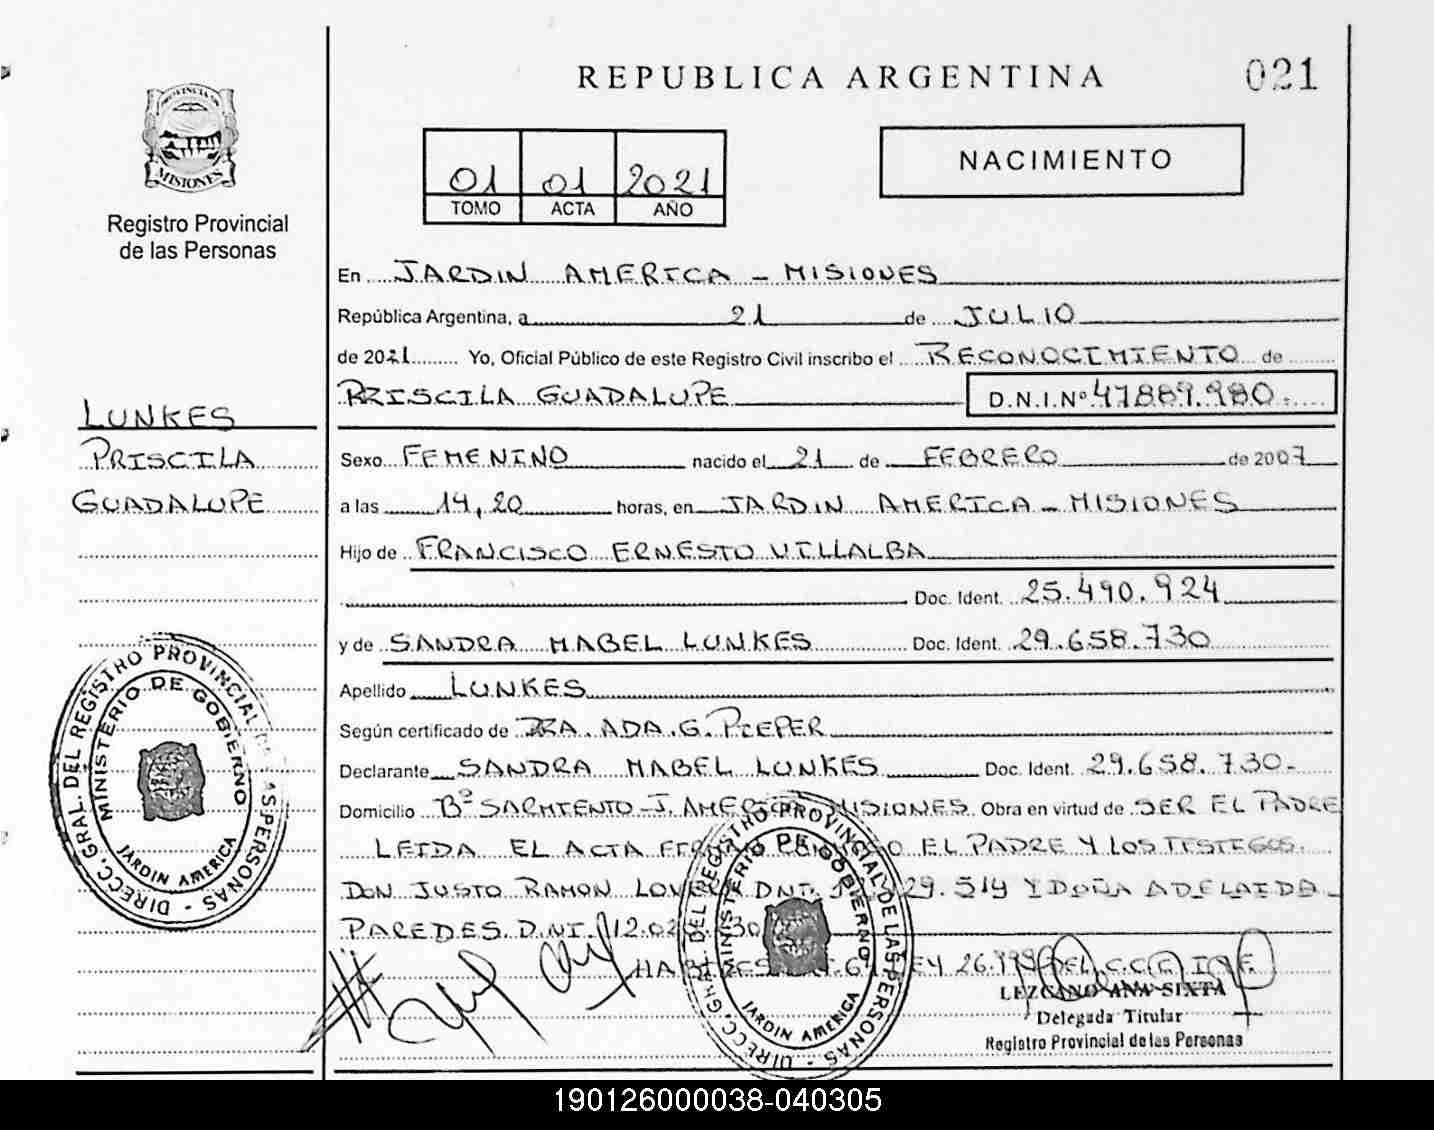 REPUBLICA ARGENTINA
021
PROVINCIA DE
MISIONES
Registro Provincial
de las Personas
01 01 2021
TOMO ACTA AÑO
NACIMIENTO
En JARDIN AMERICA - MISIONES
República Argentina, a 21 de JULIO
de 2021 Yo, Oficial Público de este Registro Civil inscribo el RECONOCIMIENTO de
PRISCILA GUADALUPE D.N.I.Nº 47.889.980.
LUNKES
PRISCILA
GUADALUPE
Sexo FEMENINO nacido el 21 de FEBRERO de 2007
a las 14,20 horas, en JARDIN AMERICA - MISIONES
Hijo de FRANCISCO ERNESTO VILLALBA
Doc. Ident. 25.490.924
y de SANDRA MABEL LUNKES Doc. Ident. 29.658.730
Apellido LUNKES
Según certificado de DRA. ADA. G. PIEPER
Declarante SANDRA MABEL LUNKES Doc. Ident. 29.658.730-
Domicilio Bº SARMIENTO - J. AMERICA MISIONES. Obra en virtud de SER EL PADRE
LEIDA EL ACTA EL PADRE Y LOS TESTIGOS.
DON JUSTO RAMON DNI. 29.514 Y DOÑA ADELAIDA
PAREDES D.NI. 12.02
LEY 26.994 DEL C.C.
LEZCANO ANA SIXTA
Delegada Titular
Registro Provincial de las Personas
DIRECC. GRAL. DEL REGISTRO PROVINCIAL DE LAS PERSONAS
MINISTERIO DE GOBIERNO
JARDIN AMERICA
DIRECC. GRAL. DEL REGISTRO PROVINCIAL DE LAS PERSONAS
MINISTERIO DE GOBIERNO
JARDIN AMERICA
190126000038-040305